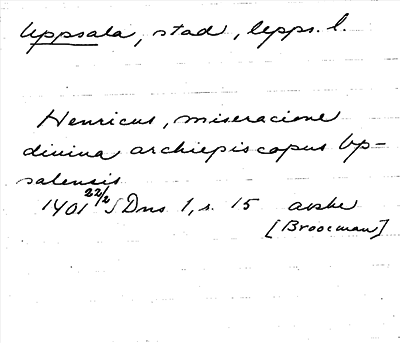 Uppsala, stad, Upps. l.
Henricus, miseracione
divina archiepiscopus Up-
salensis
1401 22/2 SDns 1, s. 15 avskr
[Broocman]